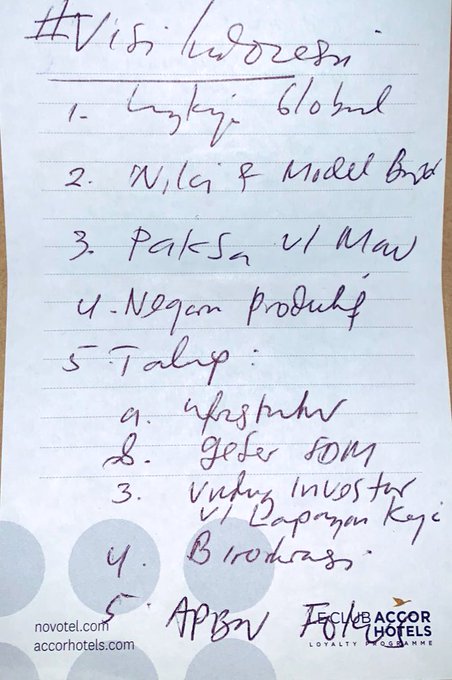 #Visi Indonesia
1. Global
2. Nilai & Model
3. Paksa u/ Mau
4. Negara Produktif
5 Tahap :
a. infrastruktur
b. geser SDM
3. Undang Investor
u/ Lapangan Kerja
4. Birokrasi
5. APBN Fokus
novotel.com
accorhotels.com
LE CLUB ACCOR
HOTELS
LOYALTY PROGRAMME